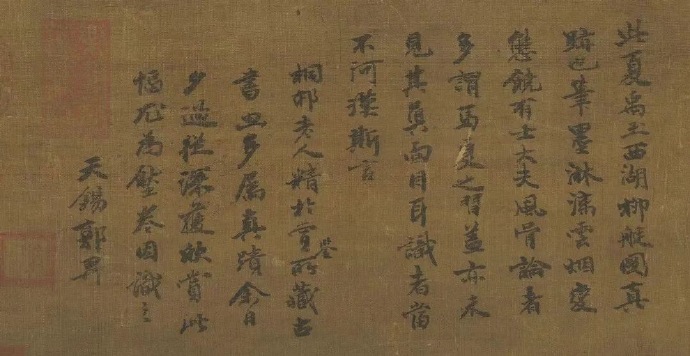 此夏禹玉西湖柳艇圖真
跡也筆墨淋漓雲烟變
態饒有士大夫風骨論者
多謂馬夏之習蓋亦未
見其真面目耳識者當
不河漢斯言
桐邨老人精於賞鑒所藏古
書畫多屬真蹟余日
夕過從深獲欣賞此
幅尤為壓卷因識之
天錫郭畀